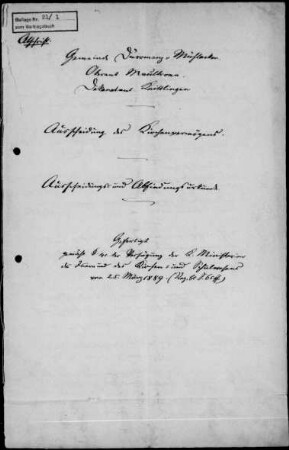 Beilage Nr. 23/1
zum Vertragsbuch
Abschrift
Gemeinde Dürrmenz-Mühlacker
Oberamt Maulbronn.
Dekanatamt Knittlingen
Ausscheidung des Kirchenvermögens.
Ausscheidungs- und Abfindungsurkunde.
Gefertigt
gemäß § der Verfügung der K. Ministerien
des Innern und des Kirchen- und Schulwesens
vom 25. März 1889 (Reg.bl. S. 65 ff)